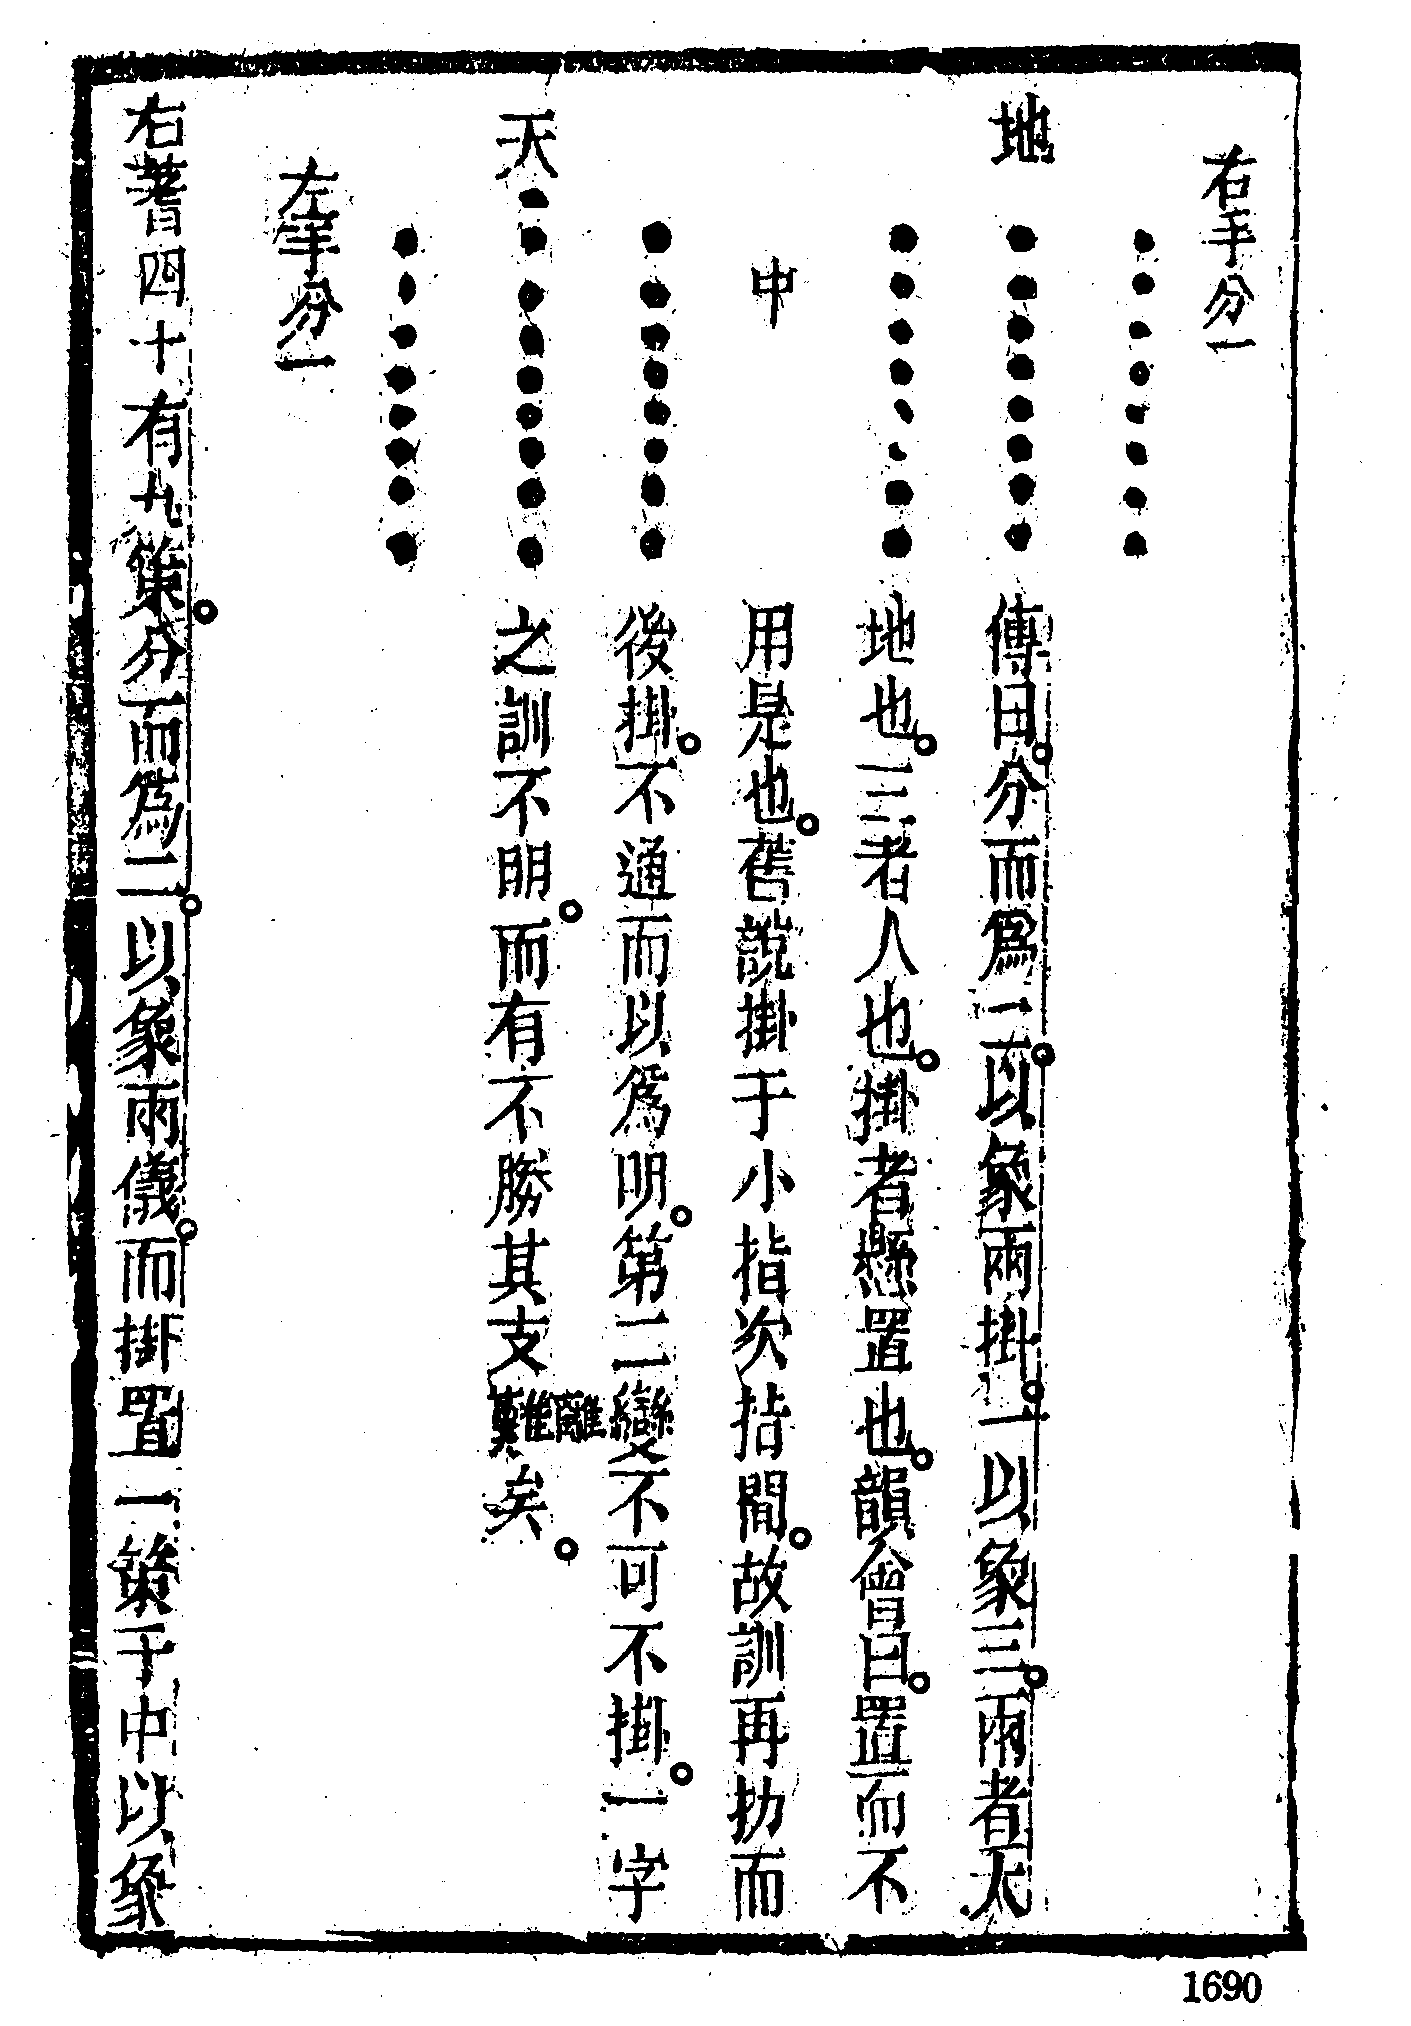 右手分一
地 傳曰。分而爲二。以象兩掛。一以象三。兩者天
地也。三者人也。掛者懸置也。韻會曰。置而不
中 用是也。舊說掛于小指次指間。故訓再扐而
後掛。不通而以爲明。第二變不可不掛。一字
天 之訓不明。而有不勝其支離難矣。
左手分一
右蓍四十有九策。分而爲二。以象兩儀。而掛置一策于中以象
1690